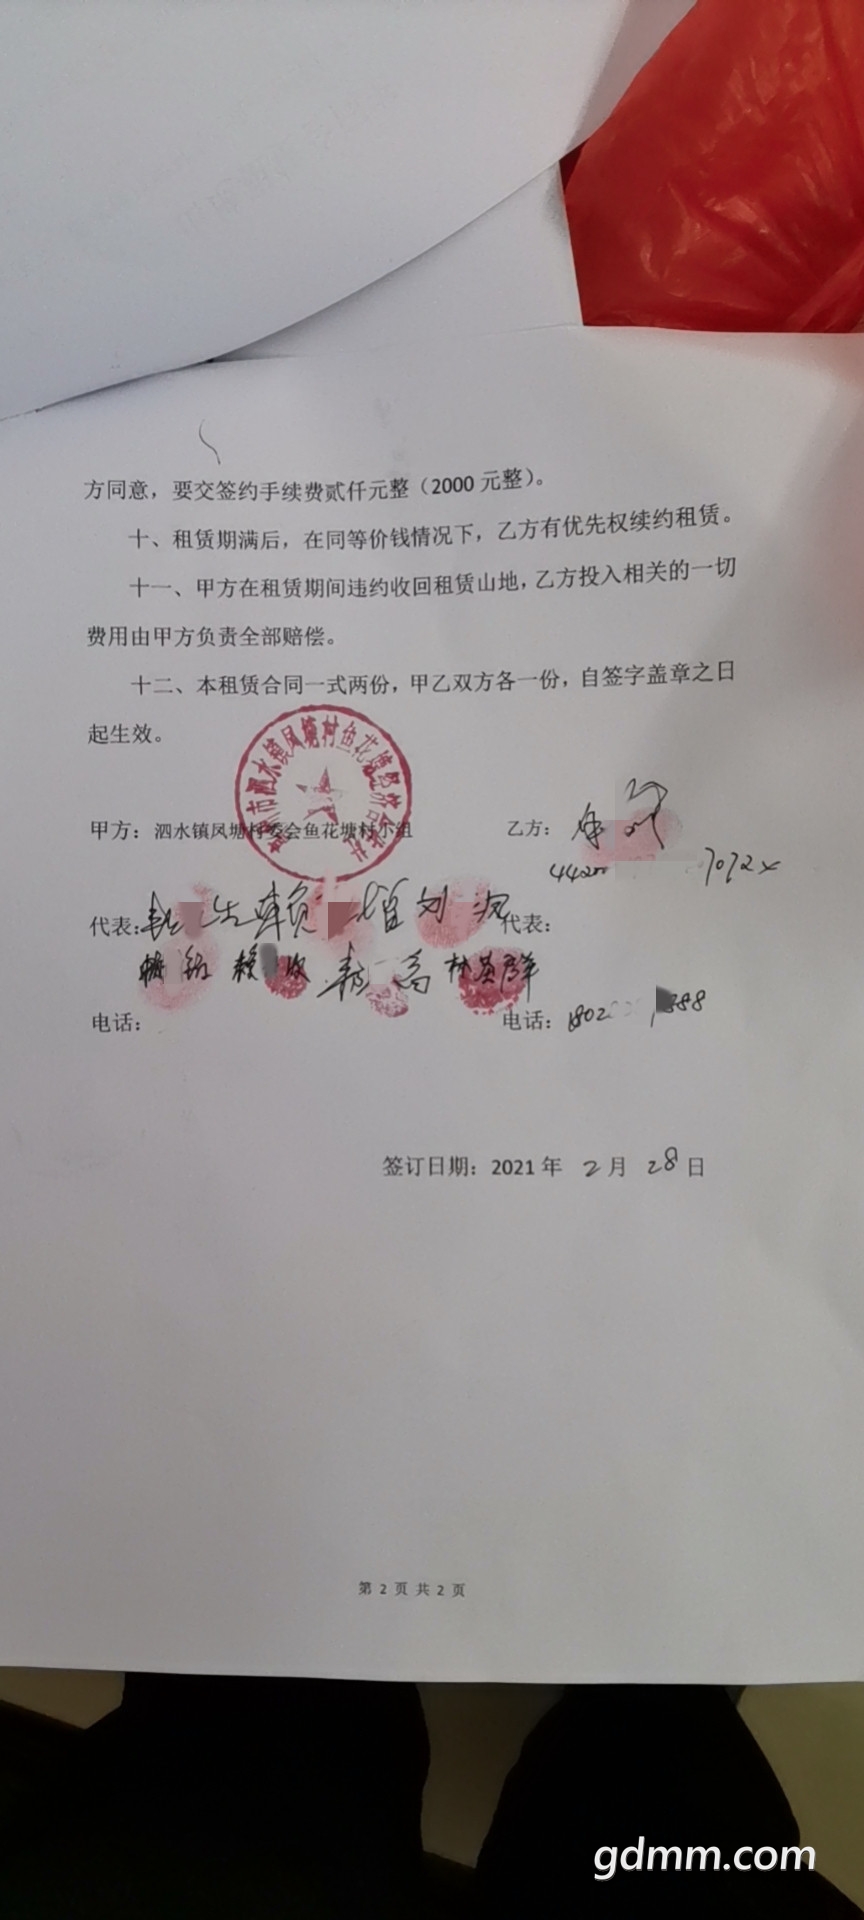 方同意，要交签约手续费贰仟元整（2000 元整）。
十、租赁期满后，在同等价钱情况下，乙方有优先权续约租赁。
十一、甲方在租赁期间违约收回租赁山地，乙方投入相关的一切
费用由甲方负责全部赔偿。
十二、本租赁合同一式两份，甲乙双方各一份，自签字盖章之日
起生效。
市泗水镇凤塘村鱼花塘经济合作社
甲方：泗水镇凤塘村委会鱼花塘村小组 乙方：
442 7072x
代表： 赖 刘 代表：
电话： 电话：1802 388
签订日期：2021 年 2 月 28 日
第 2 页 共 2 页
gdmm.com